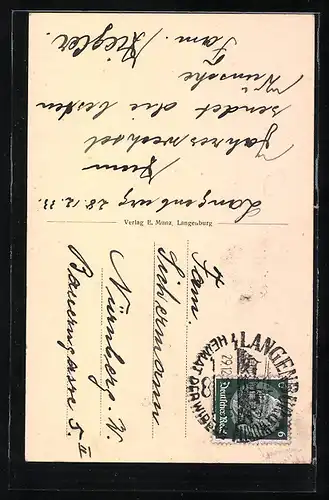 Langenburg 28.12.33.
Zum
Jahreswechsel
sendet die besten
Wünsche
Fam. Ziegler.
Verlag E. Munz, Langenburg
Fam.
Sichermann
Nürnberg. W.
Bauerngasse 5 II
LANGENBURG
HEIMAT DER WIBELE
Deutsches Reich
6